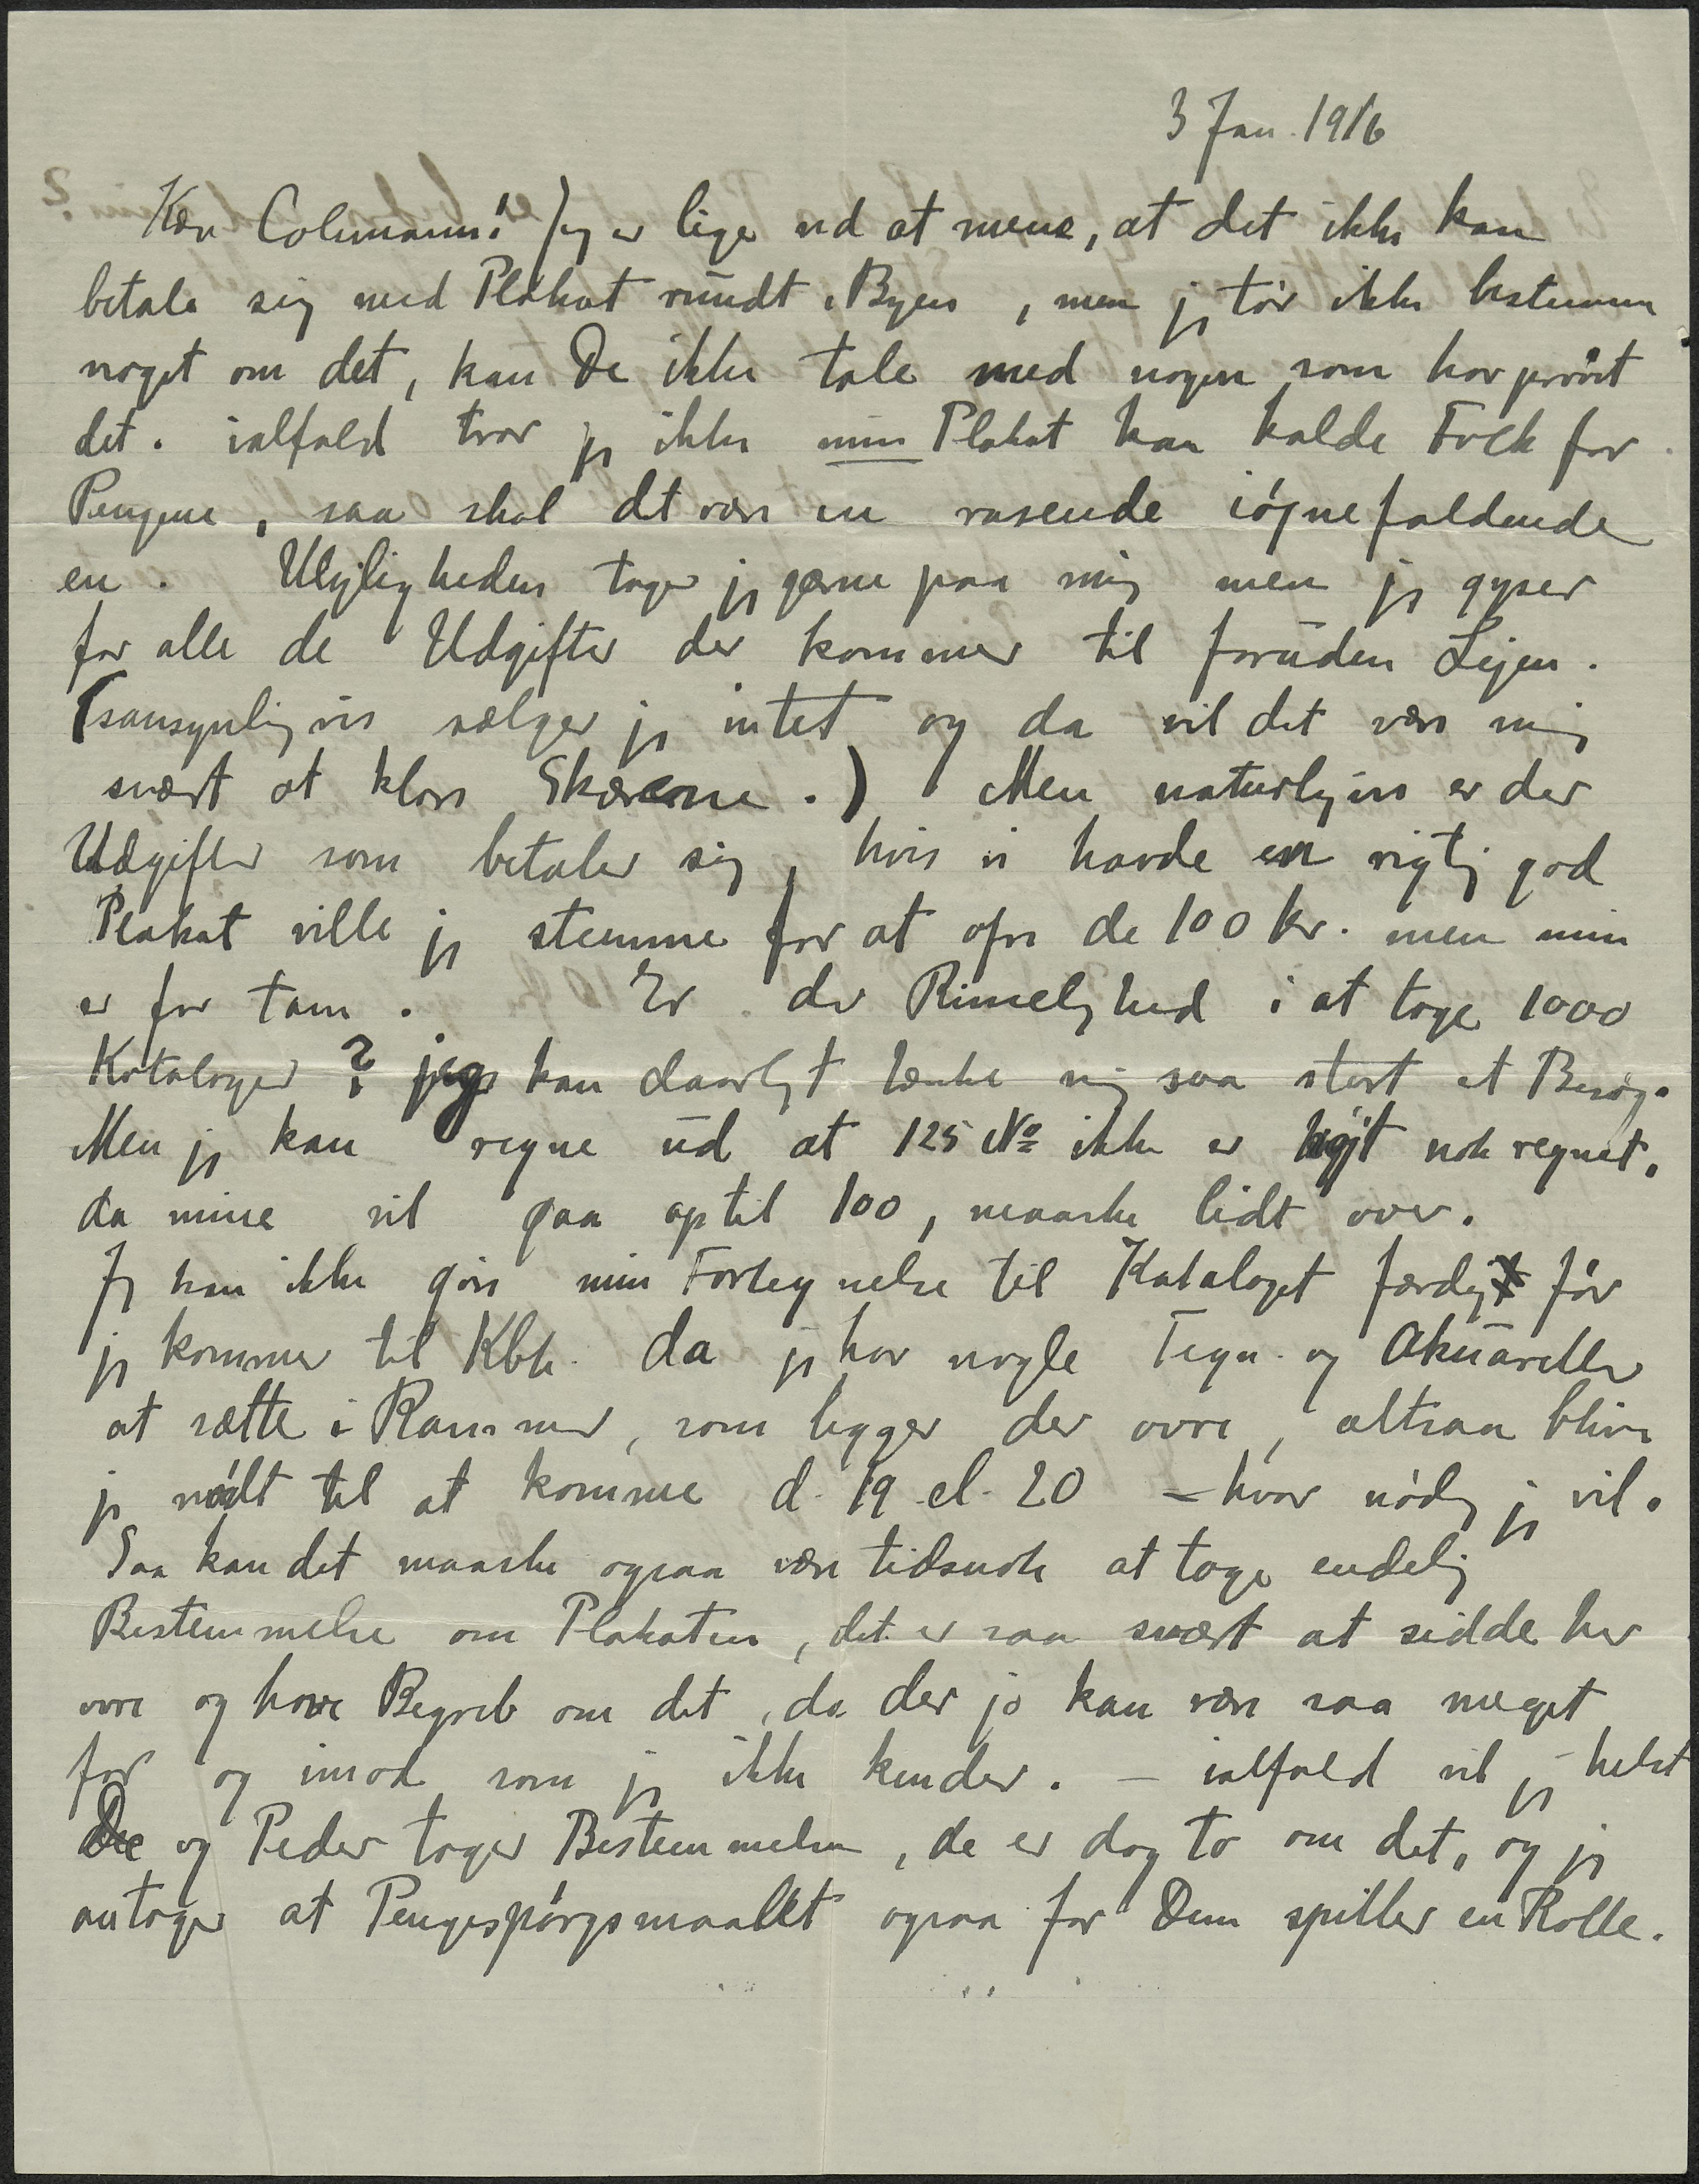 3 Jan. 1916
Kære Colsmann! Jeg er lige ved at mene, at det ikke kan
betale sig med Plakat rundt i Byen, men jeg tør ikke bestemme
noget om det, kan De ikke tale med nogen som har prøvt
det. ialfald tror jeg ikke min Plakat kan kalde Folk for
Pengene, saa skal det være en rasende iøjnefaldende
en. Ulejligheden tager jeg gerne paa mig men jeg gyser
for alle de Udgifter der kommer til foruden Lejen.
(sansynligvis sælger jeg intet og da vil det være mig
svært at klare Skærene.) Men naturligvis er der
Udgifter som betaler sig, hvis vi havde en rigtig god
Plakat ville jeg stemme for at ofre de 100 kr. men min
er for tam. Er der Rimelighed i at tage 1000
Kataloger? jeg kan daarligt tænke mig saa stort et Besøg.
Men jeg kan regne ud at 125 No ikke er højt nok regnet,
da mine vil gaa op til 100, maaske lidt over.
Jeg kan ikke gøre min Fortegnelse til Kataloget færdig før
jeg kommer til Kbh. da jeg har nogle Tegn. og Akuareller
at sætte i Rammer, som ligger der ovre, altsaa bliver
jeg nødt til at komme d. 19 el. 20 - hvor nødig jeg vil.
Saa kan det maaske ogsaa være tidsnok at tage endelig
Bestemmelse om Plakaten, det er saa svært at sidde her
ovre og have Begreb om det, da der jo kan være saa meget
for og imod som jeg ikke kender. - ialfald vil jeg helst
De og Peder tager Bestemmelsen, de er dog to om det, og jeg
antager at Pengespørgsmaalet ogsaa for Dem spiller en Rolle.